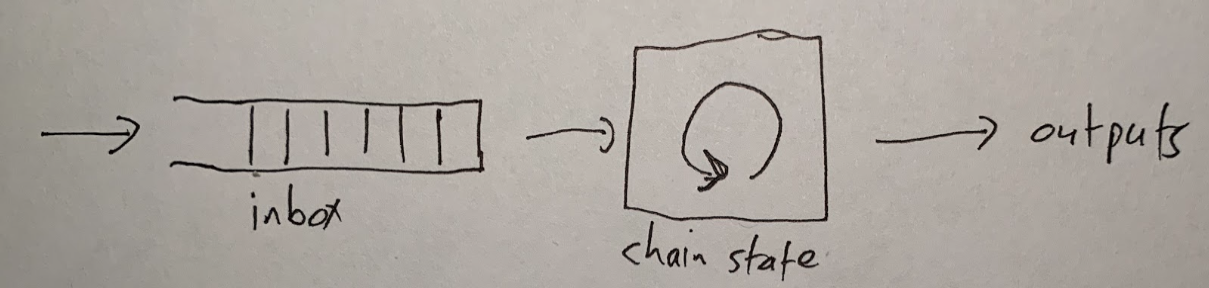 inbox
chain state
outputs